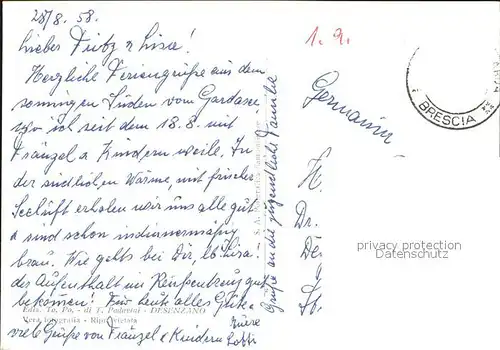 28/8. 58.
Lieber Fritz & Lisa!
Herzliche Feriengrüße aus dem
sonnigen Süden vom Gardasee
wo ich seit dem 18.8. mit
Fränzel & Kindern weile. In
der südlichen Wärme, mit frischer
Seeluft erholen wir uns alle gut
& sind schon indianermäßig
braun. Wie gehts bei Dir, lb Lisa?
der Aufenthalt im gut
bekommen? Für heute alles Gute
viele Grüße von Fränzel & Kindern Eure
Lotti
Grüße an die jugendliche Familie
Ediz. To. Po. - di T. Podavini - DESENZANO
Vera fotografia - Ripr. vietata
1. 9.
BRESCIA
Germania
H
Dr.
privacy protection
ansichtskartenversand.com